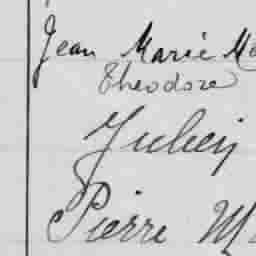 Jean Marie Ma
Theodore
Julien
Pierre M